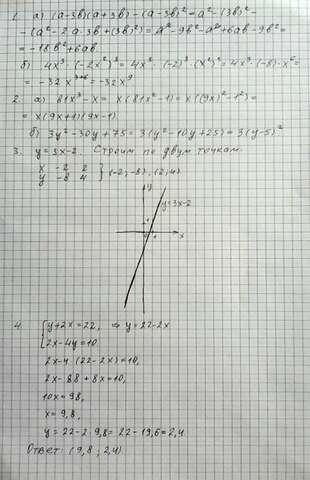 1. а) (a-3b)(a+3b) - (a-3b)² = a² - (3b)² -
- (a² - 2·a·3b + (3b)²) = a² - 9b² - a² + 6ab - 9b² =
= -18b² + 6ab
б) 4x³ · (-2x²)³ = 4x³ · (-2)³ · (x²)³ = 4x³ · (-8) · x⁶ =
= -32x³⁺⁶ = -32x⁹
2. а) 81x³ - x = x(81x² - 1) = x((9x)² - 1²) =
= x(9x+1)(9x-1)
б) 3y² - 30y + 75 = 3(y² - 10y + 25) = 3(y-5)²
3. y = 3x-2. Строим по двум точкам
x -2 2
y -8 4 } (-2,-8), (2,4)
y
y=3x-2
x
4. { y+2x=22, ⇒ y=22-2x
2x-4y=10
2x-4·(22-2x)=10,
2x-88+8x=10,
10x=98,
x=9,8,
y=22-2·9,8=22-19,6=2,4
Ответ: (9,8, 2,4).